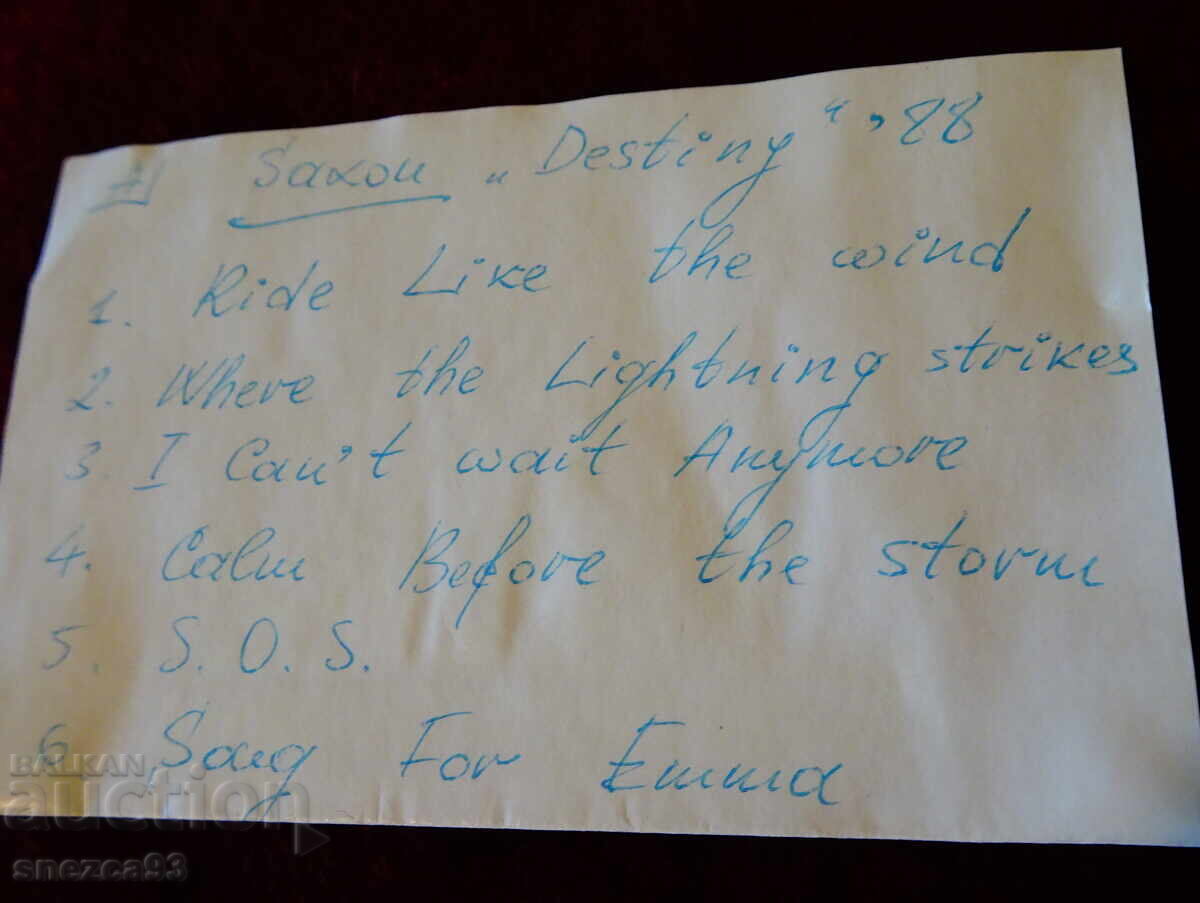 Saxon „Destiny“, 88
1. Ride Like the wind
2. Where the Lightning strikes
3. I Can't wait Anymore
4. Calm Before the storm
5. S.O.S.
6. Song For Emma
BALKAN
auction
snezca93